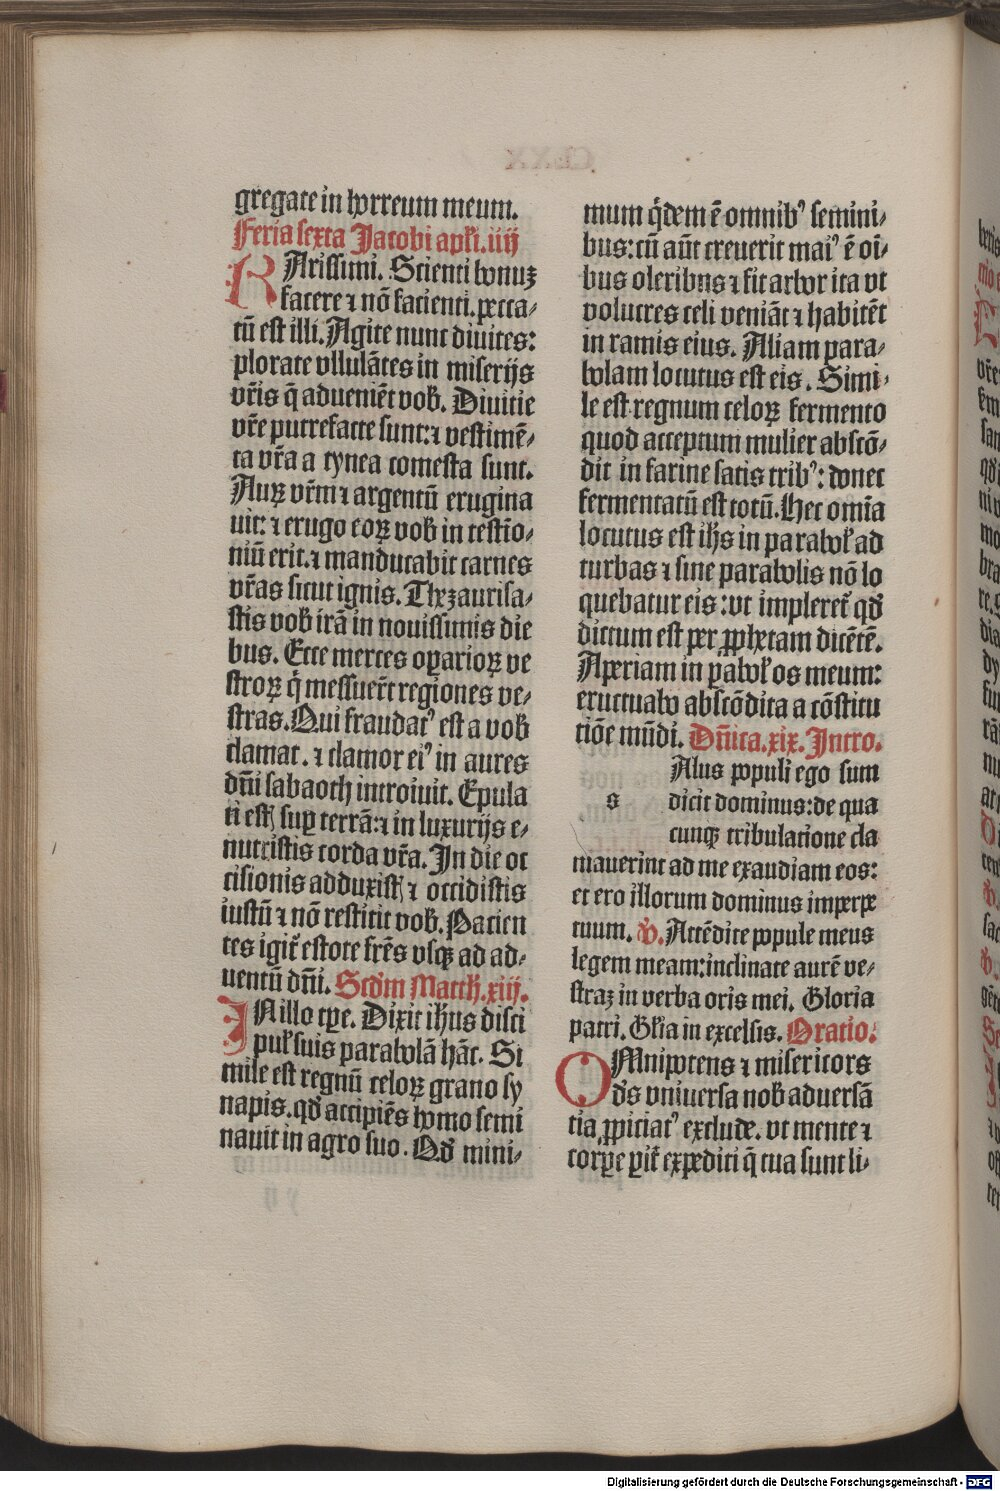 gregate in horreum meum.
Feria sexta Jacobi apl̃i.iiij
KArissimi. Scienti bonuꝫ
facere ⁊ nō facienti.pecca⸗
tū est illi. Agite nunc diuites:
plorate vllulātes in miserijs
vr̃is q̄ adueniēt vob̃. Diuitie
vr̃e putrefacte sunt:⁊ vestimē⸗
ta vr̃a a tynea comesta sunt.
Auꝝ vr̃m ⁊ argentū erugina
uit: ⁊ erugo eoꝝ vob̃ in testīo⸗
niū erit.⁊ manducabit carnes
vr̃as sicut ignis. Thezaurisa⸗
stis vob̃ irā in nouissimis die
bus. Ecce merces oꝑarioꝝ ve
stroꝝ q̇ messuer̄t regiones ve⸗
stras. Qui fraudatꝰ est a vob̃
clamat. ⁊ clamor eiꝰ in aures
dñi sabaoth introiuit. Epula
ti estꝭ suꝑ terrā:⁊ in luxurijs e⸗
nutristis corda vr̃a. In die oc
cisionis adduxistꝭ ⁊ occidistis
iustū ⁊ nō restitit vob̃. Pacien
tes igit᷑ estote fr̄es vsqꝫ ad ad⸗
uentū dñi. Scd̃m Matth̃.xiij.
IN illo tꝑe. Dixit ihūs disci
pul̃ suis parabolā hāc. Si
mile est regnū celoꝝ grano sy
napis.qd̃ accipiēs homo semi
nauit in agro suo. Qd̃ mini⸗
mum q̇dem ē omnibꝰ semini⸗
bus:cū aūt creuerit maiꝰ ē oī⸗
bus oleribus ⁊ fit arbor ita vt
volucres celi veniāt ⁊ habitēt
in ramis eius. Aliam para⸗
bolam locutus est eis. Simi⸗
le est regnum celoꝝ fermento
quod acceptum mulier abscō⸗
dit in farine satis tribꝰ: donec
fermentatū est totū. Hec omīa
locutus est ihs̄ in parabol̃ ad
turbas ⁊ sine parabolis nō lo
quebatur eis:vt impleret᷑ qd̃
dictum est per ꝓphetam dicētē.
Aperiam in ꝑabol̃ os meum:
eructuabo abscōdita a cōstitu
tiōe mūdi. Dñica.xix. Intro.
Alus populi ego sum
s dicit dominus:de qua
cunqꝫ tribulatione cla
mauerint ad me exaudiam eos:
et ero illorum dominus imperpe
tuum. ℣. Attēdite popule meus
legem meam:inclinate aurē ve⸗
straꝫ in verba oris mei. Gloria
patri. Gl̃ia in excelsis. Oratio.
OMnipotens ⁊ misericors
ds̄ vniuersa nob̃ aduersā
tia ꝓpiciatꝰ exclude. vt mente ⁊
corꝑe ꝑit᷑ expediti q̄ tua sunt li⸗
Digitalisierung gefördert durch die Deutsche Forschungsgemeinschaft - DFG